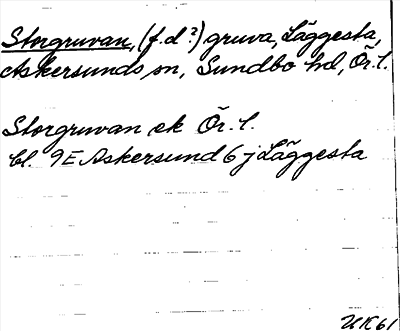 Storgruvan, (f.d?) gruva, Läggesta,
Askersunds sn, Sundbo hd, Ör. l.
Storgruvan ek Ör. l.
bl. 9E Askersund 6 j Läggesta
UK61